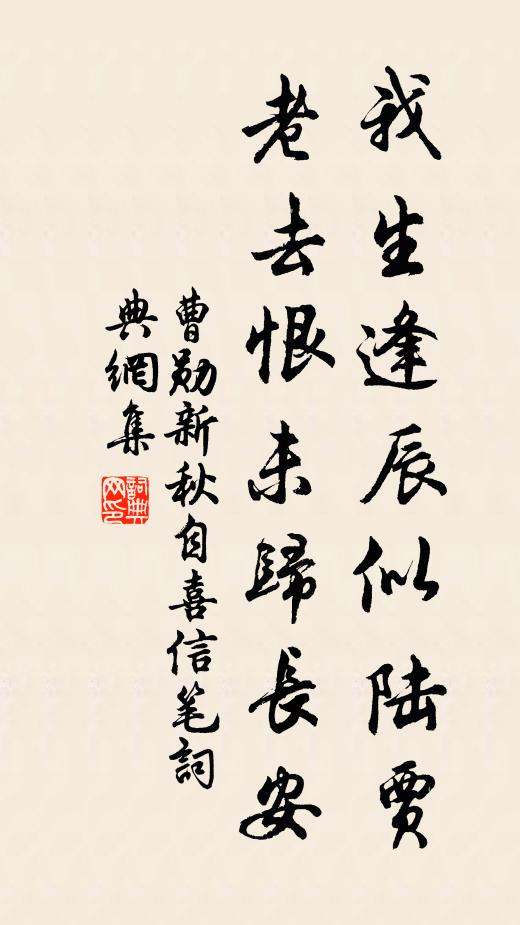 我生逢辰似陆贾
老去恨未歸長安
曹勋新秋自喜信笔詞
典網集
詞典网印